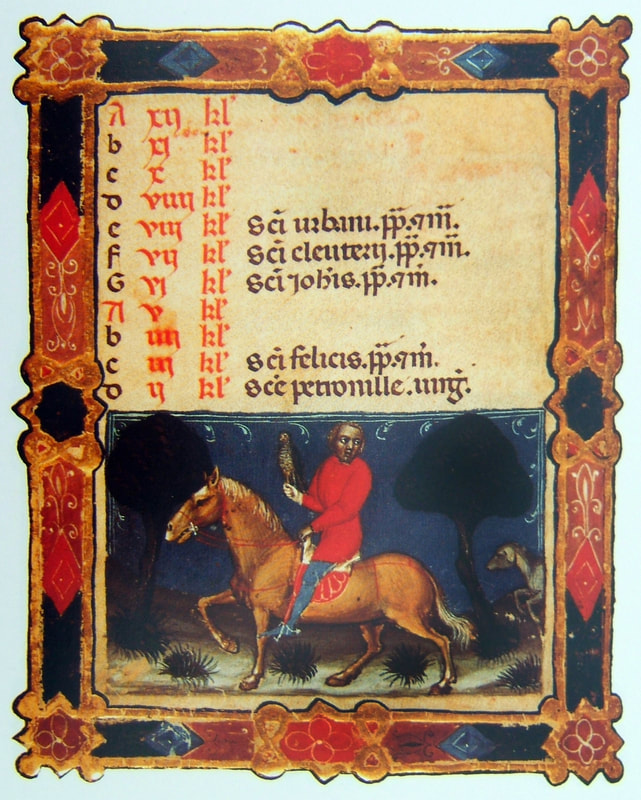 A xij kl'
b xj kl'
c x kl'
D viiij kl'
e viij kl' Sc̄i urbani. p̄p̄. ⁊ m̄.
f vij kl' Sc̄i eleuterij. p̄p̄. ⁊ m̄.
G vj kl' Sc̄i Joh̄is. p̄p̄. ⁊ m̄.
A v kl'
b iiij kl'
c iij kl' Sc̄i felicis. p̄p̄. ⁊ m̄.
D ij kl' Sc̄e petronille. uirḡ.